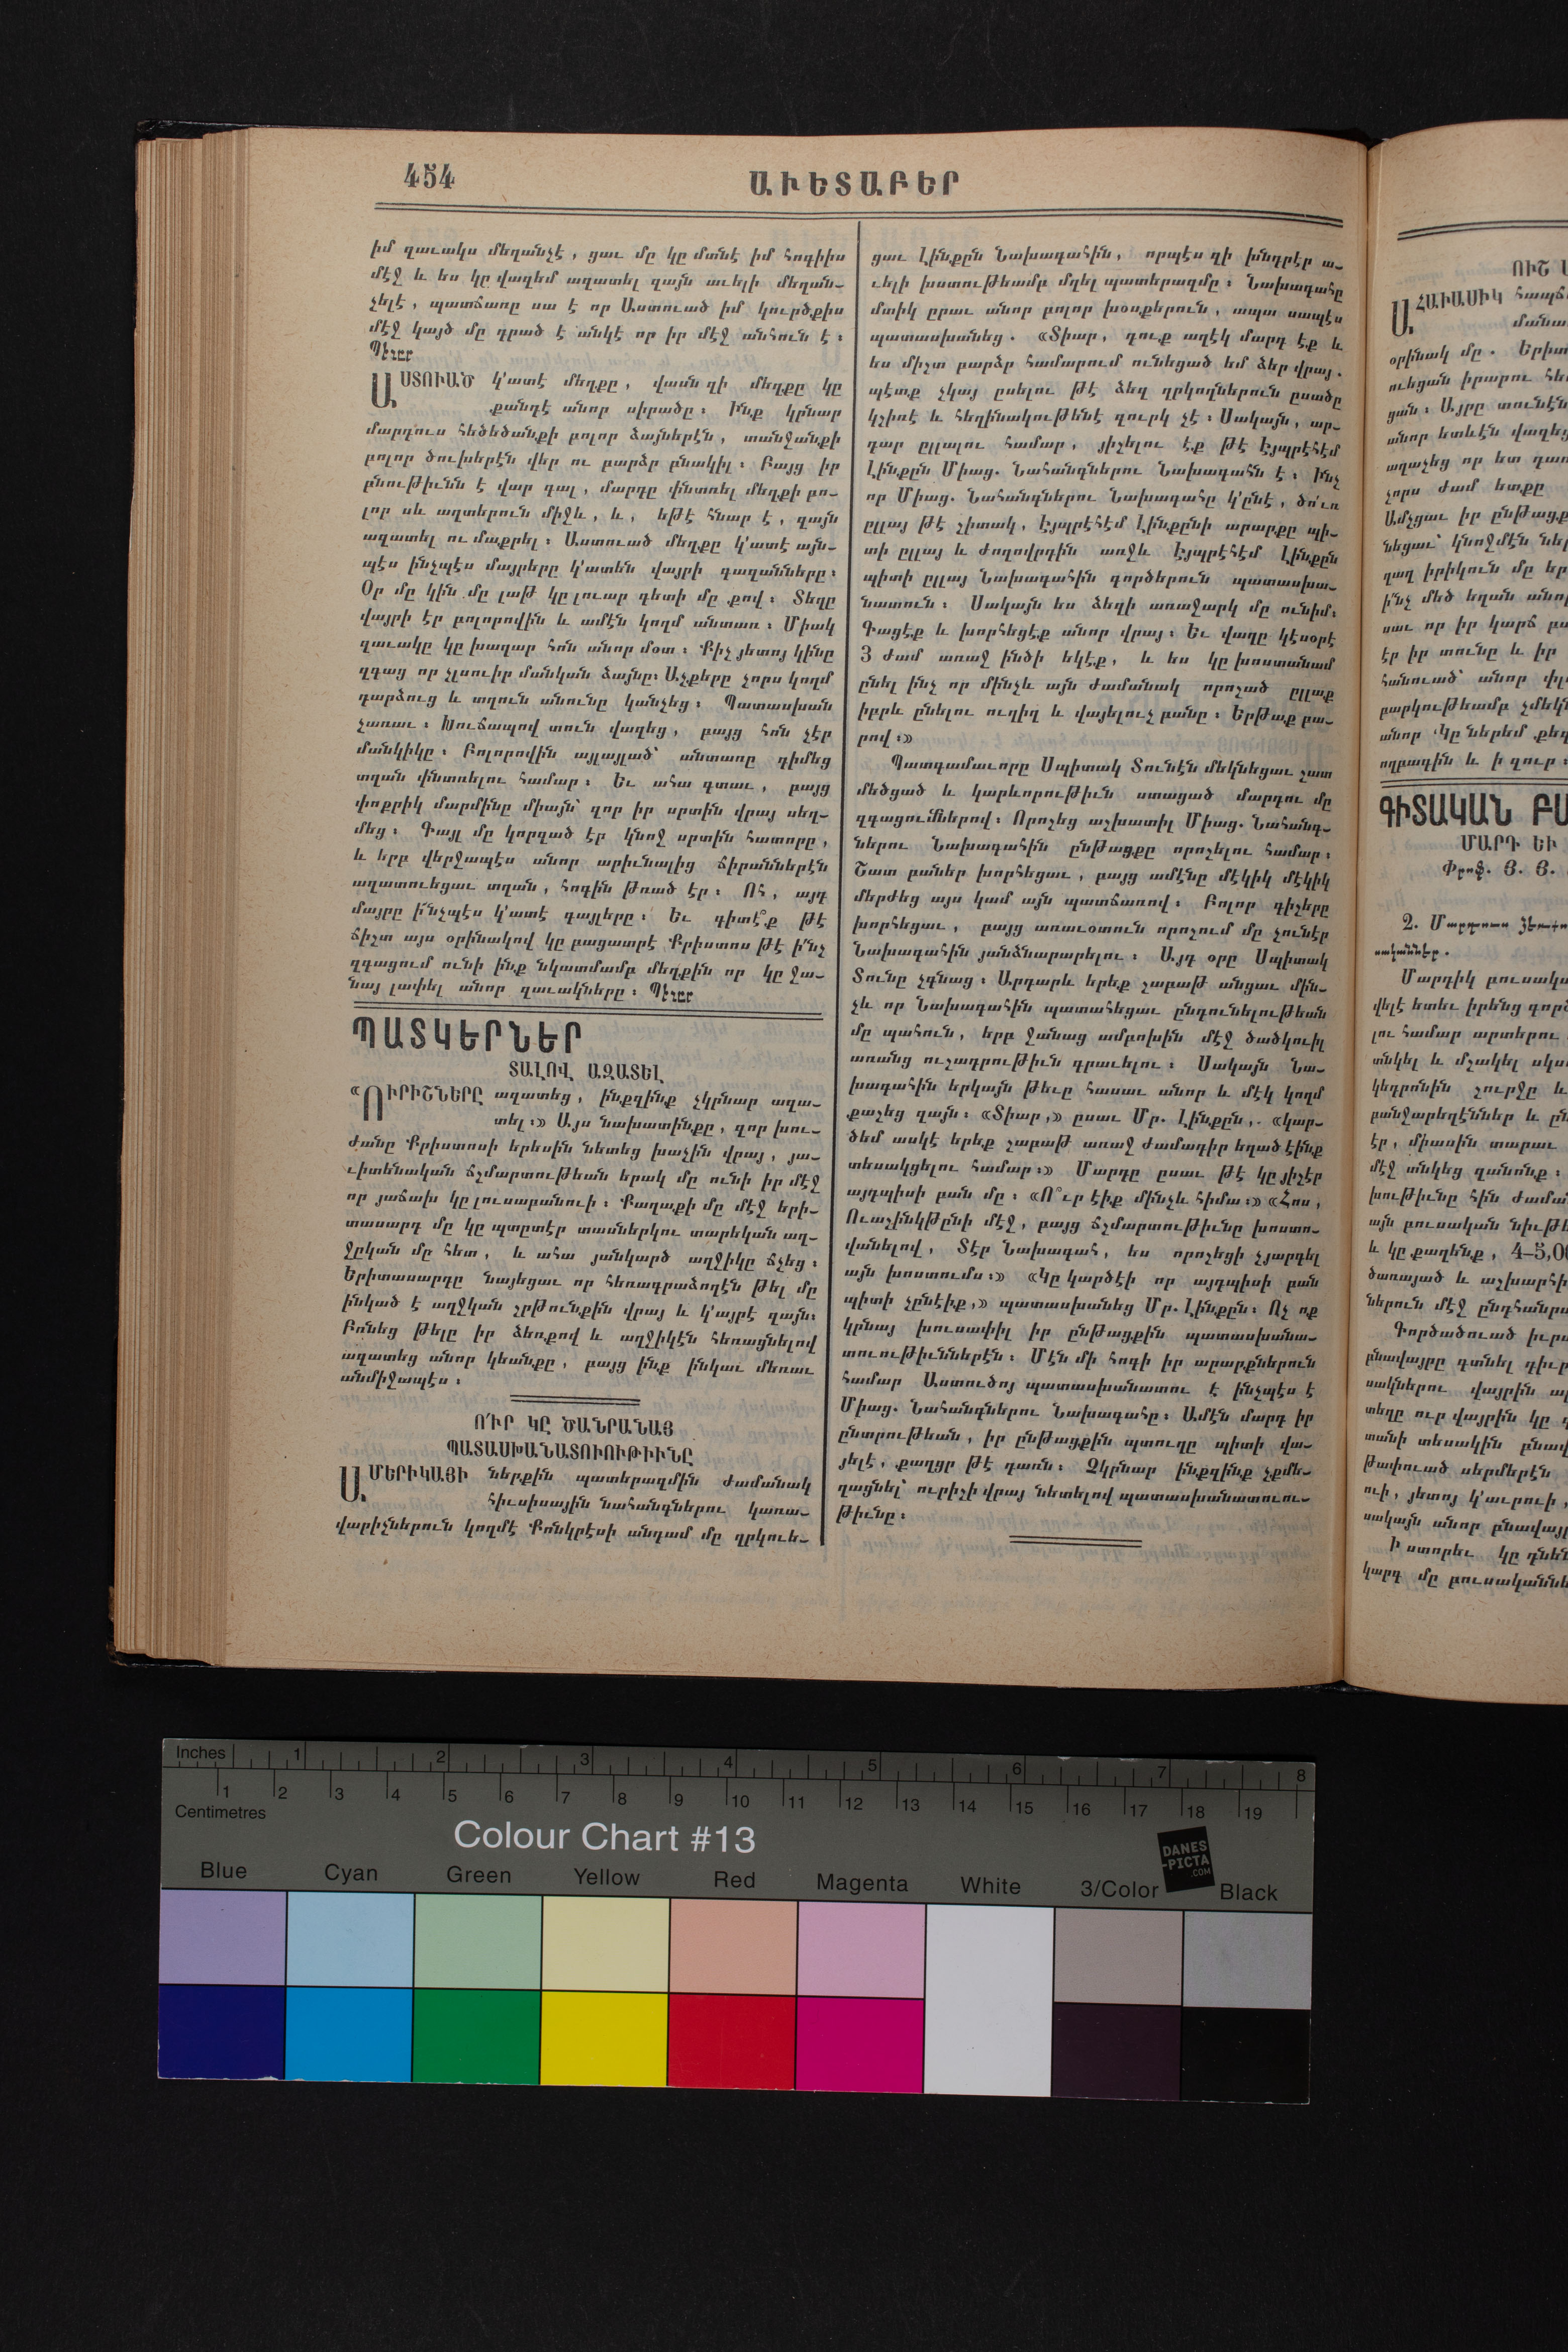 454
ԱՒԵՏԱԲԵՐ
իմ զաւակս մեղանչէ, ցաւ մը կը մտնէ իմ հոգիիս
մէջ և ես կը վազեմ ազատել զայն աւելի մեղան–
չելէ, պատճառը սա է որ Աստուած իմ կուրծքիս
մէջ կայծ մը դրած է անկէ որ իր մէջ անհուն է։
Պէտըր
ԱՍՏՈՒԱԾ կ՚ատէ մեղքը, վասն զի մեղքը կը
քանդէ անոր սիրածը։ Ինք կրնար
մարդուս հեծեծանքի բոլոր ձայներէն, տանջանքի
բոլոր ծուխերէն վեր ու բարձր բնակիլ։ Բայց իր
բնութիւնն է վար գալ, մարդը փնտռել մեղքի բո–
լոր սև աղտերուն միջև, և, եթէ հնար է, զայն
ազատել ու մաքրել։ Աստուած մեղքը կ՚ատէ այն–
պէս ինչպէս մայրերը կ՚ատեն վայրի գազանները։
Օր մը կին մը լաթ կը լուար գետի մը քով։ Տեղը
վայրի էր բոլորովին և ամէն կողմ անտառ։ Միակ
զաւակը կը խաղար հոն անոր մօտ։ Քիչ յետոյ կինը
զգաց որ չլսուիր մանկան ձայնը։ Աչքերը չորս կողմ
դարձուց և տղուն անունը կանչեց։ Պատասխան
չառաւ։ Խուճապով տուն վազեց, բայց հոն չէր
մանկիկը։ Բոլորովին այլայլած՝ անտառը դիմեց
տղան փնտռելու համար։ Եւ ահա գտաւ, բայց
փոքրիկ մարմինը միայն՝ զոր իր սրտին վրայ սեղ–
մեց։ Գայլ մը կորզած էր կնոջ սրտին հատորը,
և երբ վերջապէս անոր արիւնալից ճիրաններէն
ազատուեցաւ տղան, հոգին թռած էր։ Ոհ, այդ
մայրը ի՜նչպէս կ՚ատէ գայլերը։ Եւ գիտէ՞ք թէ
ճիշտ այս օրինակով կը բացատրէ Քրիստոս թէ ի՛նչ
զգացում ունի ինք նկատմամբ մեղքին որ կը ջա–
նայ լափել անոր զաւակները։ Պէտըր
ՊԱՏԿԵՐՆԵՐ
ՏԱԼՈՎ ԱԶԱՏԵԼ
«ՈՒՐԻՇՆԵՐԸ ազատեց, ինքզինք չկրնար ազա–
տել։» Այս նախատինքը, զոր խու–
ժանը Քրիստոսի երեսին նետեց խաչին վրայ, յա–
ւիտենական ճշմարտութեան երակ մը ունի իր մէջ
որ յաճախ կը լուսաբանուի։ Քաղաքի մը մէջ երի–
տասարդ մը կը պտըտէր տասներկու տարեկան աղ–
ջըկան մը հետ, և ահա յանկարծ աղջիկը ճչեց։
Երիտասարդը նայեցաւ որ հեռագրաձողէն թել մը
ինկած է աղջկան շրթունքին վրայ և կ՚այրէ զայն։
Բռնեց թելը իր ձեռքով և աղջիկէն հեռացնելով
ազատեց անոր կեանքը, բայց ինք ինկաւ մեռաւ
անմիջապէս։
Ո՜ՒՐ ԿԸ ԾԱՆՐԱՆԱՅ
ՊԱՏԱՍԽԱՆԱՏՈՒՈՒԹԻՒՆԸ
ԱՄԵՐԻԿԱՅԻ ներքին պատերազմին ժամանակ
հիւսիսային նահանգներու կառա–
վարիչներուն կողմէ Քոնկրէսի անդամ մը ղրկուե–
ցաւ Լինքըն Նախագահին, որպէս զի խնդրէր ա–
ւելի խստութեամբ մղել պատերազմը։ Նախագահը
մտիկ ըրաւ անոր բոլոր խօսքերուն, ապա սապէս
պատասխանեց. «Տիար, դուք աղէկ մարդ էք և
ես միշտ բարձր համարում ունեցած եմ ձեր վրայ.
պէտք չկայ ըսելու թէ ձեզ ղրկողներուն ըսածը
կշիռէ և հեղինակութենէ զուրկ չէ։ Սակայն, ար–
դար ըլլալու համար, յիշելու էք թէ Էյպրէհէմ
Լինքըն Միաց. Նահանգներու Նախագահն է։ Ինչ
որ Միաց. Նահանգներու Նախագահը կ՚ընէ, ծո՛ւռ
ըլլայ թէ շիտակ, Էյպրէհէմ Լինքընի արարքը պի–
տի ըլլայ և ժողովրդին առջև Էյպրէհէմ Լինքըն
պիտի ըլլայ Նախագահին գործերուն պատասխա–
նատուն։ Սակայն ես ձեզի առաջարկ մը ունիմ։
Գացէք և խորհեցէք անոր վրայ։ Եւ վաղը կէսօրէ
3 ժամ առաջ ինծի եկէք, և ես կը խոստանամ
ընել ինչ որ մինչև այն ժամանակ որոշած ըլլաք
իբրև ընելու ուղիղ և վայելուչ բանը։ Երթաք բա–
րով։»
Պատգամաւորը Սպիտակ Տունէն մեկնեցաւ շատ
մեծցած և կարևորութիւն ստացած մարդու մը
զգացումներով։ Որոշեց աշխատիլ Միաց. Նահանգ–
ներու Նախագահին ընթացքը որոշելու համար։
Շատ բաներ խորհեցաւ, բայց ամէնը մէկիկ մէկիկ
մերժեց այս կամ այն պատճառով։ Բոլոր գիշերը
խորհեցաւ, բայց առաւօտուն որոշում մը չունէր
Նախագահին յանձնարարելու։ Այդ օրը Սպիտակ
Տունը չգնաց։ Արդարև երեք շաբաթ անցաւ մին–
չև որ Նախագահին պատահեցաւ ընդունելութեան
մը պահուն, երբ ջանաց ամբոխին մէջ ծածկուիլ
առանց ուշադրութիւն գրաւելու։ Սակայն Նա–
խագահին երկայն թեւը հասաւ անոր և մէկ կողմ
քաշեց զայն։ «Տիար,» ըսաւ Մր. Լինքըն,. «կար–
ծեմ ասկէ երեք շաբաթ առաջ ժամադիր եղած էինք
տեսակցելու համար։» Մարդը ըսաւ թէ կը յիշէր
այդպիսի բան մը։ «Ո՞ւր էիք մինչև հիմա։» «Հոս,
Ուաշինկթընի մէջ, բայց ճշմարտութիւնը խոստո–
վանելով, Տէր Նախագահ, ես որոշեցի չյարգել
այն խոստումս։» «Կը կարծէի որ այդպիսի բան
պիտի չընէիք,» պատասխանեց Մր. Լինքըն։ Ոչ ոք
կրնայ խուսափիլ իր ընթացքին պատասխանա–
տուութիւններէն։ Մէն մի հոգի իր արարքներուն
համար Աստուծոյ պատասխանատու է ինչպէս է
Միաց. Նահանգներու Նախագահը։ Ամէն մարդ իր
ընտրութեան, իր ընթացքին պտուղը պիտի վա–
յելէ, քաղցր թէ դառն։ Չկրնար ինքզինք չքմե–
ղացնել՝ ուրիշի վրայ նետելով պատասխանատուու–
թիւնը։
ՈՒՇ
ԱՀԱՒԱՍԻԿ հապճ
մանա
օրինակ մը. Երիտ
ուեցան իրարու հե
ցան։ Այրը տունէն
անոր ետևէն վազեց
աղաչեց որ ետ դառ
չորս ժամ ետքը
Ամչցաւ իր ընթացք
նեցաւ՝ կնոջմէն նե
ղաղ իրիկուն մը եր
ի՛նչ մեծ եղան անո
սաւ որ իր կարճ բա
էր իր տունը և իր
հանուած՝ անոր փլ
բարկութեամբ չմեկն
անոր Կը ներեմ քեզ
ողբագին և ի զուր։
ԳԻՏԱԿԱՆ ԲԱ
ՄԱՐԴ ԵՒ
Փրոֆ. Յ. Յ.
2. Մարդուս
սականներ.
Մարդիկ բուսակա
վելէ ետեւ իրենց գործ
լու համար արտերու
տնկել և մշակել սկս
կեդրոնին շուրջը և
բանջարեղէններ և ըն
էր, միասին տարաւ
մէջ տնկեց զանոնք։
խութիւնը հին ժամա
այն բուսական նիւթե
և կը քաղենք, 4–5,00
ծառայած և աշխարհի
ներուն մէջ ընդհանրա
Գործածուած իւրա
բնավայրը գտնել դիւր
սակներու վայրին ա
տեղը ուր վայրին կը գ
տանի տեսակին բնավ
թափուած սերմերէն
ուի, յետոյ կ՚աւրուի,
սակայն անոր բնավայր
Ի ստորեւ կը դնեն
կարգ մը բուսականնե
Inches 1 2 3 4 5 6 7 8
1 2 3 4 5 6 7 8 9 10 11 12 13 14 15 16 17 18 19
Centimetres
Colour Chart #13
DANES
-PICTA
.COM
Blue Cyan Green Yellow Red Magenta White 3/Color Black